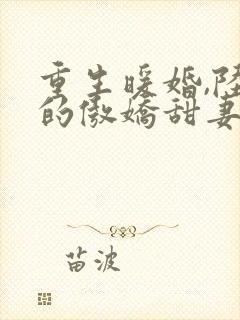 重生暖婚,陆
的傲娇甜妻
苗波